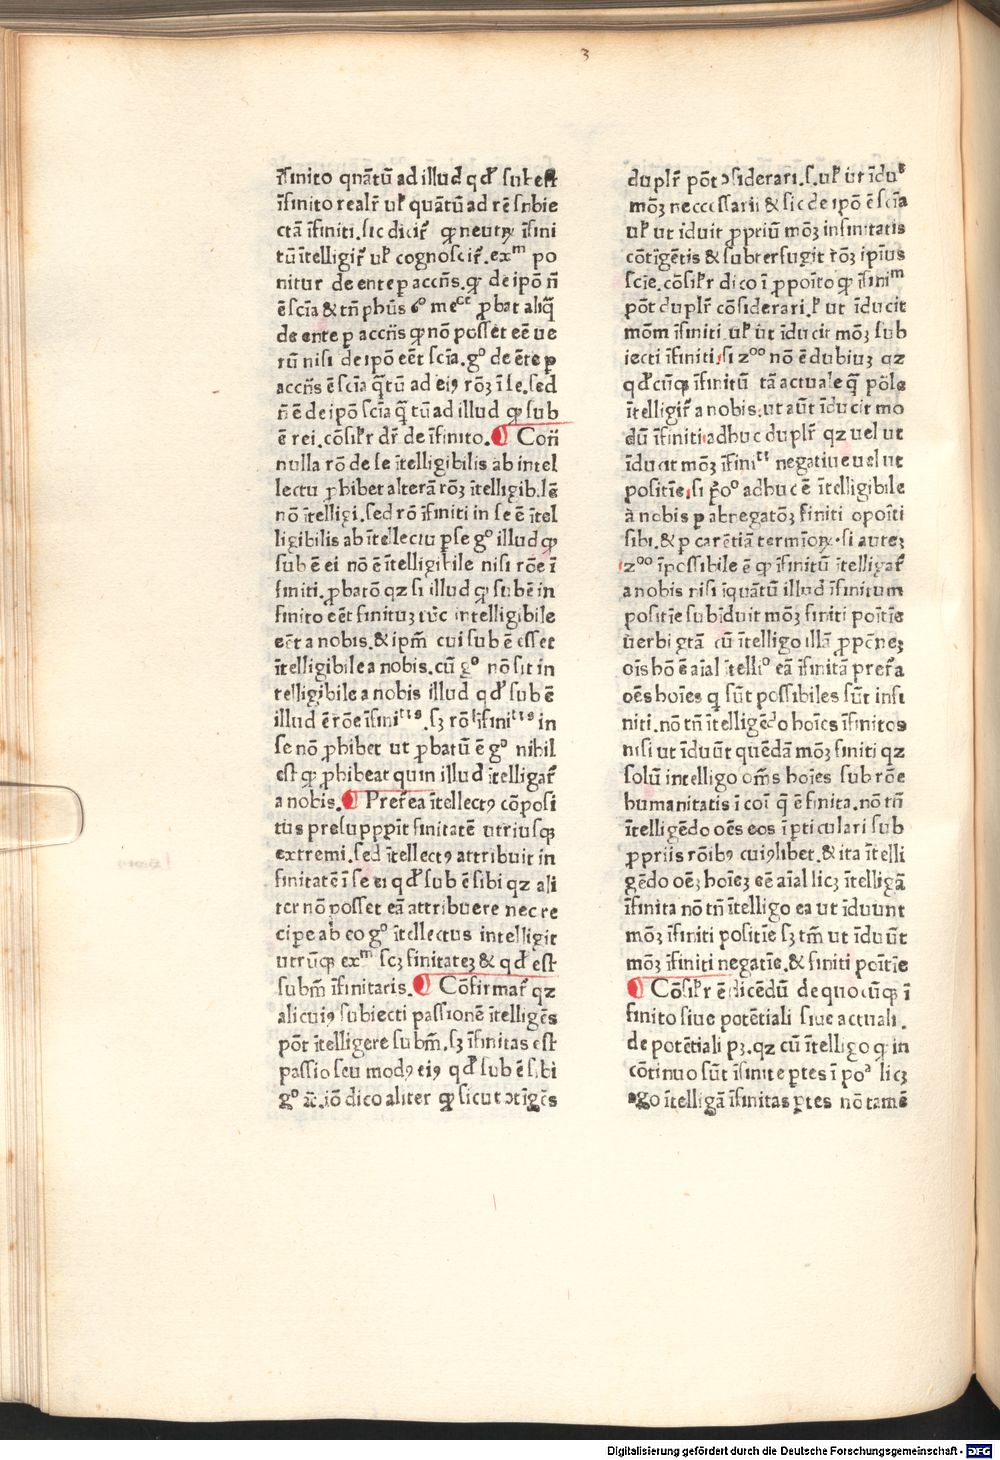 3
īfinito qnãtũ ad illud qđ subest
īfinito realr̃ ul̛ quãtũ ad rẽ snbie
ctã īfiniti. sic dicit̛ ꝙ neutꝝ īfini
tũ ītelligit̛ ul̛ cognoscit̛. exᵐ po
nitur de ente ꝑ accñs. ꝙ de ipõ ñ
ẽ scĩa & tñ phũs 6º meᶜᵉ ꝓbat aliq̃
de ente ꝑ accñs ꝙ nõ posset eẽ ue
rũ nisi de ipõ eẽt scĩa. gº de ẽte ꝑ
accñs ẽ scĩa q̃tũ ad eiꝰ rõꝫ ī se. sed
ñ ẽ de ipõ scĩa q̃tũ ad illud ꝙ sub
ẽ rei. cõsil̛r dr̃ de īfinito. ¶ Coñ
nulla rõ de se ītelligibilis ab intel
lectu ꝓhibet alterã rõꝫ ītelligib.lẽ
nõ ītelligi. sed rõ īfiniti in se ẽ ītel
ligibilis ab ītellectu ꝑ se gº illud ꝙ
sub ẽ ei nõ ẽ ītelligibile nisi rõe ī
finiti. ꝓbatõ qz si illud ꝙ subẽ in
finito eẽt finituꝫ tũc intelligibile
eẽt a nobis. & ipm̃ cui sub ẽ esset
ītelligibile a nobis. cũ gº nõ sit in
telligibile a nobis illud qđ sub ẽ
illud ẽ rõe īfiniᵗⁱˢ. sꝫ rõ īfiniᵗⁱˢ in
se nõ ꝓhibet ut ꝓbatũ ẽ gº nihil
est ꝙ ꝓhibeat quin illud ītelligat̛
a nobis. ¶ Preter̃ea ītellectꝰ cõposi
tus presupppĩt finitatẽ utriusqꝫ
extremi. sed ītellectꝰ attribuit in
finitatẽ ī se ei qđ sub ẽ sibi qz ali
ter nõ posset eã attribuere nec re
cipe ab eo gº ītellectus intelligit
utrũqꝫ exᵐ scꝫ finitateꝫ & qđ est
subm̃ īfinitatis. ¶ Cõfirmat̛ qz
alicuiꝰ subiecti passionẽ ītelligẽs
põt ītelligere subm̃. sꝫ īfinitas est
passio seu modꝰ eiꝰ qđ sub ẽ sibi
gº &c̃. iõ dico aliter ꝙ sicut ↄtīgẽs
duplr̃ põt ↄsiderari. s. ul̛ ut īduᵗ
mõꝫ neccssarii & sic de ipõ ẽ scĩa
ul̛ ut īduit ꝓpriũ mõꝫ infinitatis
cõtīgẽtis & subterfugit rõꝫ ipĩus
scĩe. cõsil̛r dico ī ꝓpoĩto ꝙ īfiniᵐ
põt duplr̃ cõsiderari. ul̛ ut īducit
mõm īfiniti ul̛ ut īducit mõꝫ sub
iecti īfiniti. si 2ºº nõ ẽ dubiuꝫ qz
qđcũqꝫ īfinitũ tã actuale q̃ põle
ītelligit̛ a nobis. ut aũt īducit mo
dũ īfiniti adhuc duplr̃ qz uel ut
īducit mõꝫ īfiniᵗⁱ negatiue uel ut
positĩe. si pº adhuc ẽ ītelligibile
a nobis ꝑ abnegatõꝫ finiti opoĩti
sibi. & ꝑ carẽtiã termĩoꝝ. si auteꝫ
2ºº īpossibile ẽ ꝙ īfinitũ ītelligat̛
a nobis nisi īquãtũ illud īfinitum
positĩe subīduit mõꝫ finiti poĩtĩe
uerbi gr̃a cũ ītelligo illã ꝓpõneꝫ
oĩs hõ ẽ aĩal ītelliº eã īfinitã prer̃a
oẽs hoĩes q̃ sũt possibiles sũt infi
niti. nõ tñ ītelligẽdo hoĩes īfinitos
nisi ut īduũt quẽdã mõꝫ finiti qz
solũ intelligo om̃s hoĩes sub rõe
humanitatis ī coĩ q̃ ẽ finita. nõ tñ
ītelligẽdo oẽs eos ī pticulari sub
ꝓpriis rõibꝰ cuiꝰlibet. & ita ītelli
gẽdo oẽꝫ hoĩeꝫ eẽ aĩal licꝫ ītelligã
īfinita nõ tñ ītelligo ea ut īduunt
mõꝫ īfiniti positĩe sꝫ tm̃ ut īduũt
mõꝫ īfiniti negatĩe. & finiti poĩtĩe
¶ Cõsil̛r ẽ dicẽdũ de quocũqꝫ ī
finito siue potẽtiali siue actuali.
de potẽtiali pꝫ. qz cũ ītelligo ꝙ in
cõtinuo sũt īfinite ꝑtes ī poᵃ licꝫ
ego ītelligã īfinitas ꝑtes nõ tamẽ
Digitalisierung gefördert durch die Deutsche Forschungsgemeinschaft - DFG